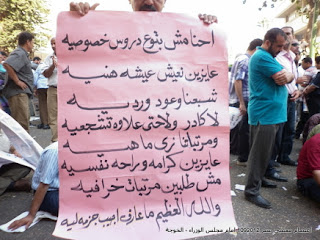 احنا مش بتوع دروس خصوصيه
عايزين نعيش عيشه هنيه
شبعنا وعود ورديه
لا كادر ولا حتى علاوه تشجعيه
ومرتباتنا زى ما هيه
عايزين كرامه وراحه نفسيه
مش طلبين مرتبات خرافيه
والله العظيم ما عارف اجيب جزمه ليه
امام مجلس الوزراء - الخوجة